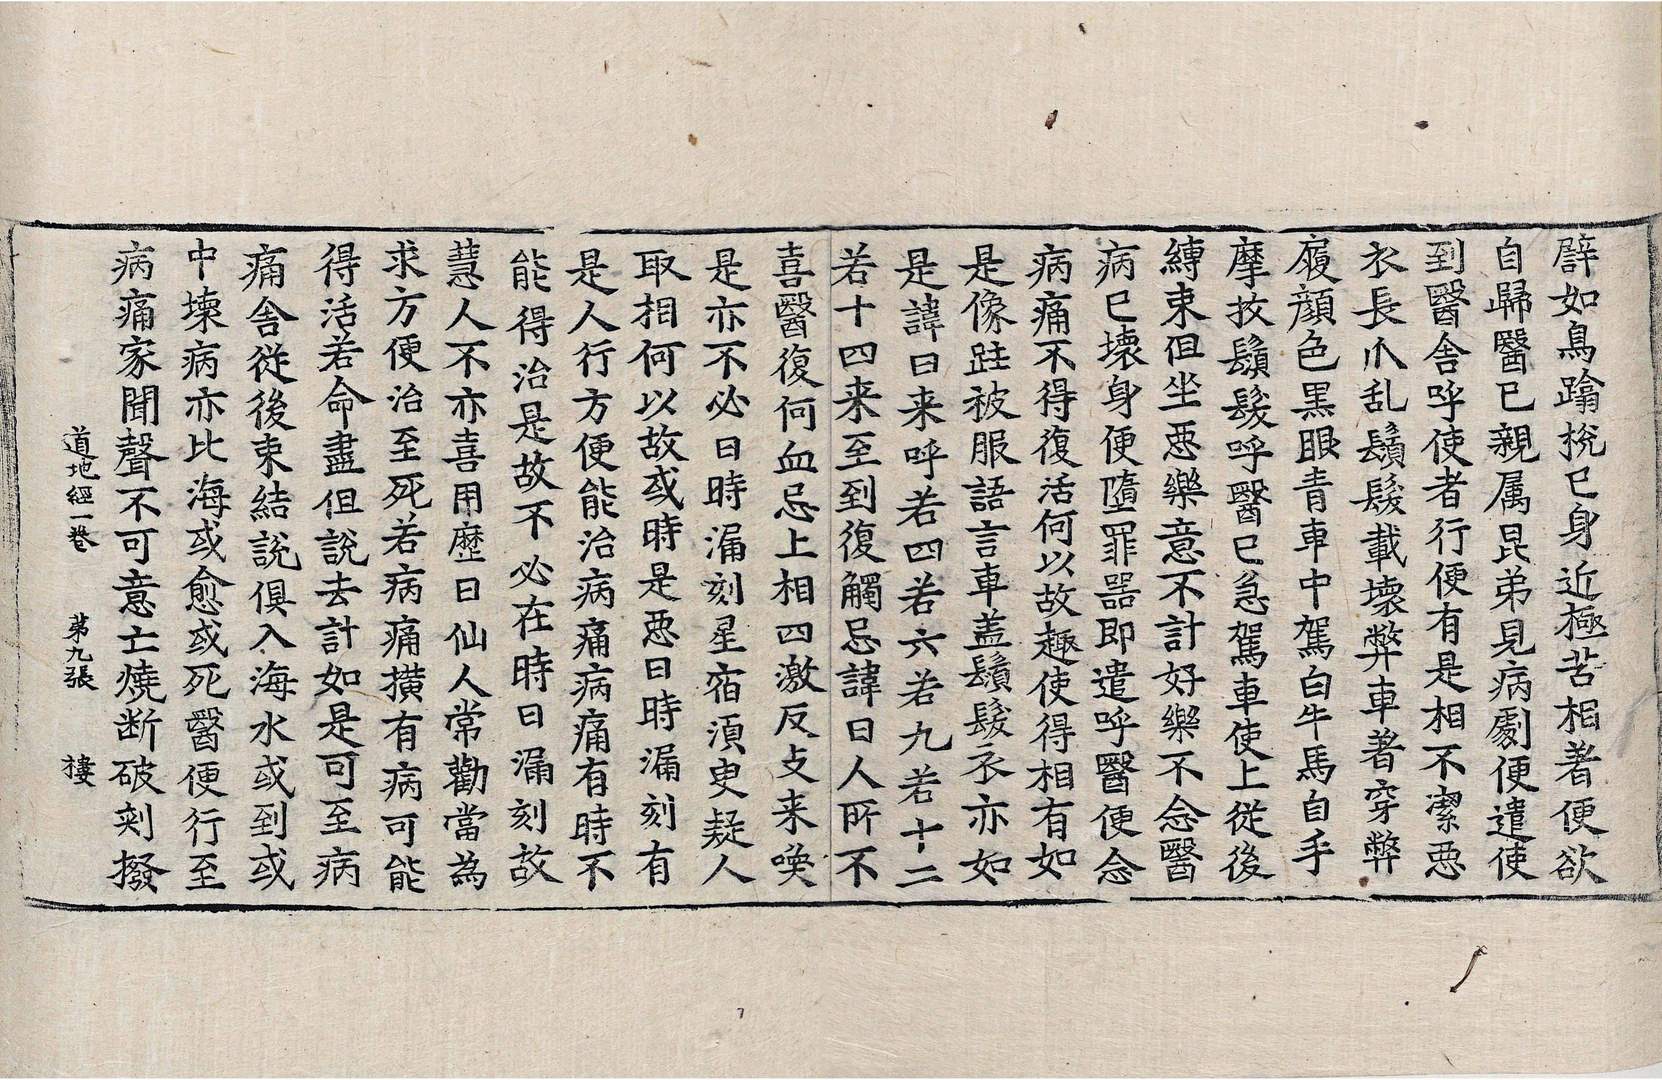 辟如鳥蹹捝已身近極苦相著便欲
自歸醫已親属昆弟見病劇便遣使
到醫舍呼使者行便有是相不潔惡
衣長爪乱鬚髮載壞弊車著穿弊
履顔色黒眼青車中駕白牛馬自手
摩抆鬚髮呼醫已急駕車使上從後
縛束但坐惡樂意不計好樂不念醫
病已壞身便墮罪器即遣呼醫便念
病痛不得復活何以故趣使得相有如
是像跓被服語言車盖鬚髮衣亦如
是諱日来呼若四若六若九若十二
若十四来至到復觸忌諱日人所不
喜醫復何血忌上相四激反支来喚
是亦不必日時漏刻星宿湏臾疑人
取相何以故或時是惡日時漏刻有
是人行方便能治病痛病痛有時不
能得治是故不必在時日漏刻故
慧人不亦喜用歷日仙人常勸當為
求方便治至死若病痛横有病可能
得活若命盡但說去計如是可至病
痛舍從後束結說俱入海水或到或
中壊病亦比海或愈或死醫便行至
病痛家聞聲不可意亡燒断破刾撥
道地經一卷 苐九張 樓